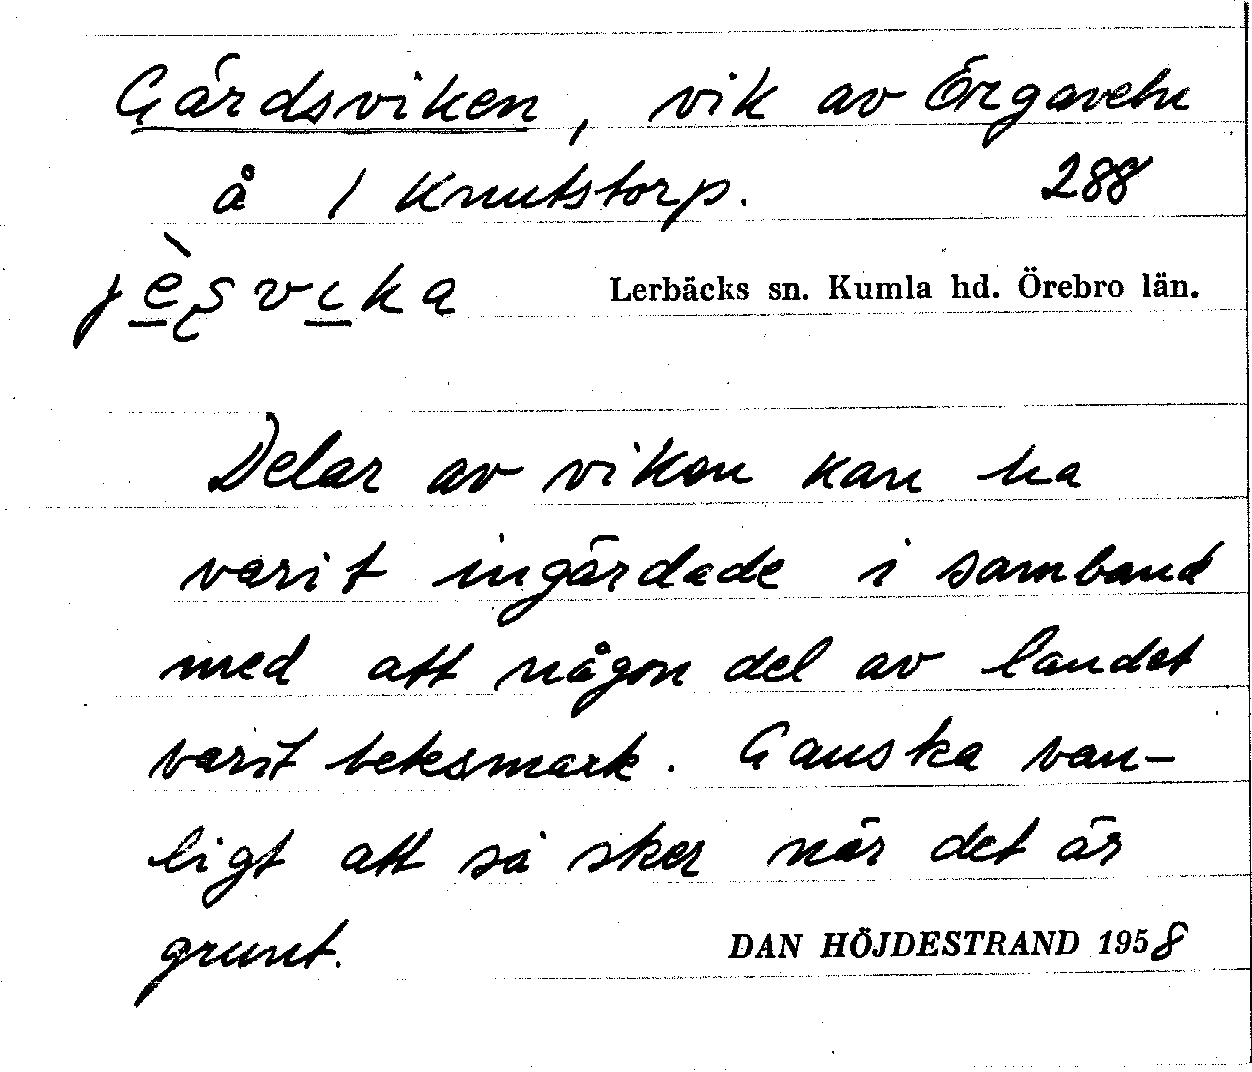 Gärdsviken, vik av Örgaveln
å / Knutstorp. 288
Lerbäcks sn. Kumla hd. Örebro län.
Delar av viken kan ha
varit ingärdade i samband
med att någon del av landet
varit betesmark. Ganska van-
ligt att så sker när det är
grunt. DAN HÖJDESTRAND 1958